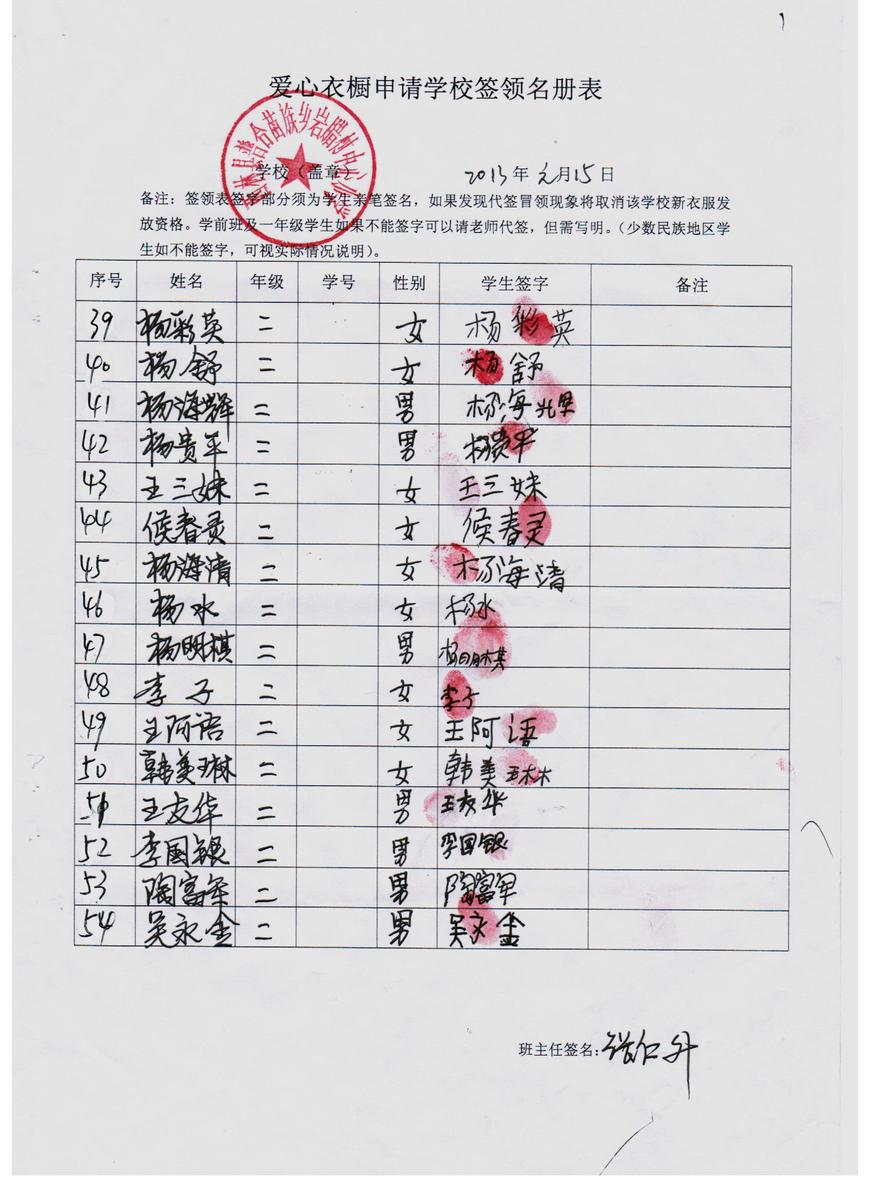 爱心衣橱申请学校签领名册表
学校（盖章） 2013年元月15日
备注：签领表签字部分须为学生亲笔签名，如果发现代签冒领现象将取消该学校新衣服发
放资格。学前班及一年级学生如果不能签字可以请老师代签，但需写明。（少数民族地区学
生如不能签字，可视实际情况说明）。
序号 姓名 年级 学号 性别 学生签字 备注
39 杨彩英 二 女 杨彩英
40 杨舒 二 女 杨舒
41 杨海辉 二 男 杨海辉
42 杨贵平 二 男 杨贵平
43 王三妹 二 女 王三妹
44 侯春灵 二 女 侯春灵
45 杨海清 二 女 杨海清
46 杨水 二 女 杨水
47 杨明棋 二 男 杨明棋
48 李子 二 女 李子
49 王阿语 二 女 王阿语
50 韩美琳 二 女 韩美琳
51 王友华 二 男 王友华
52 李国银 二 男 李国银
53 陶富军 二 男 陶富军
54 吴永金 二 男 吴永金
班主任签名：